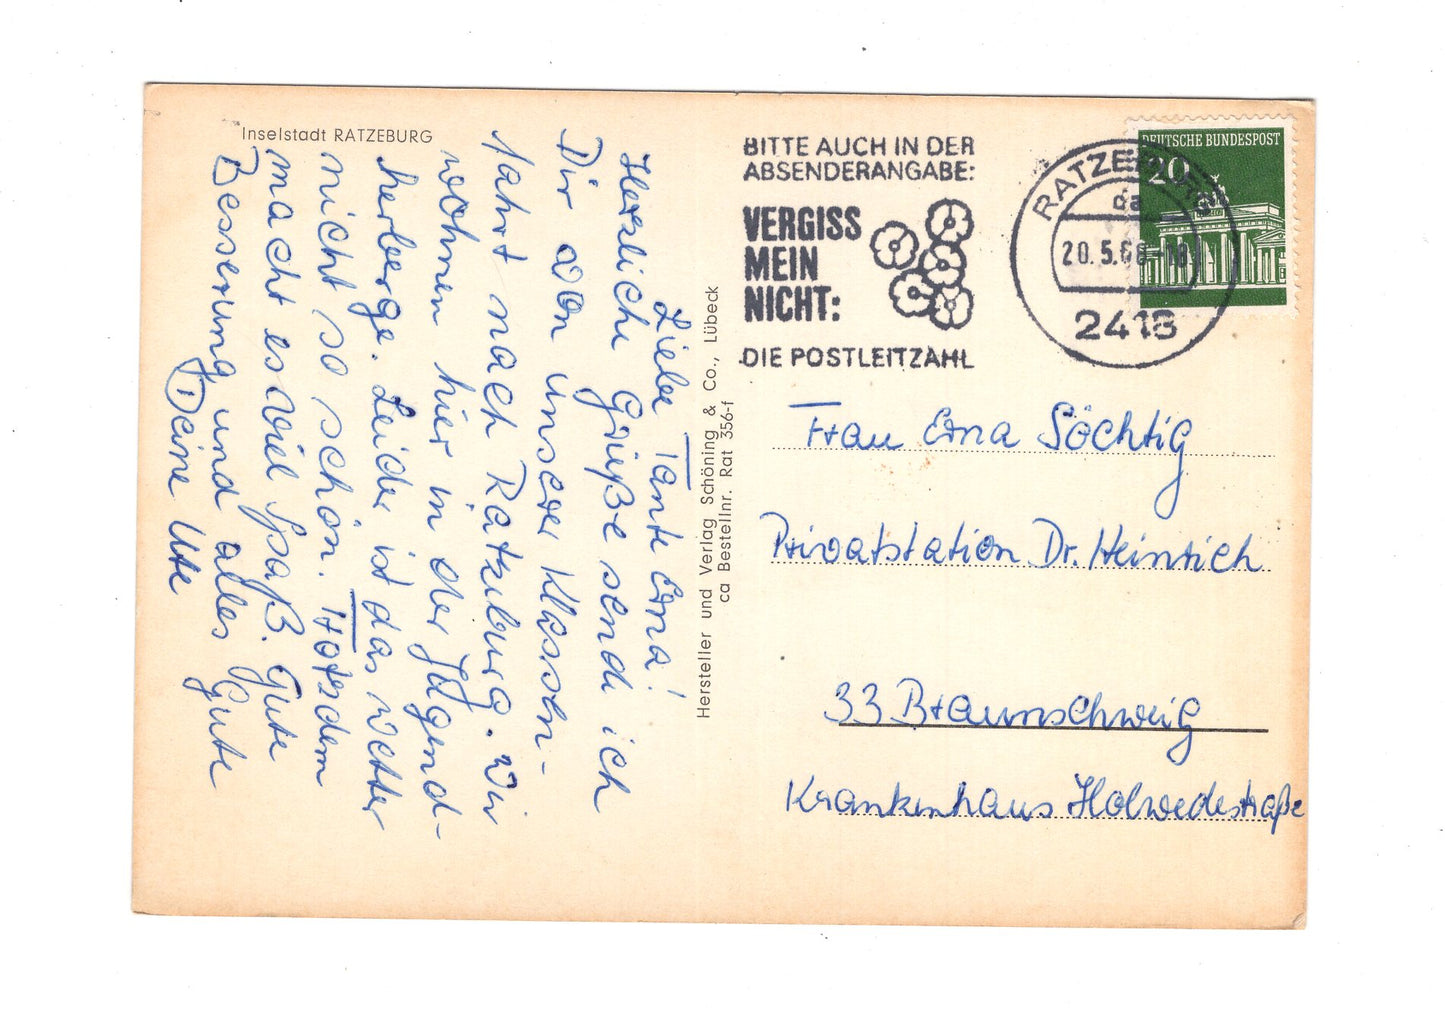 Inselstadt RATZEBURG
Liebe Tante Erna!
Herzliche Grüße sende ich
Dir von unserer Klassen-
fahrt nach Ratzeburg. Wir
wohnen hier in der Jugend-
herberge. Leider ist das Wetter
nicht so schön. Trotzdem
macht es viel Spaß. Gute
Besserung und alles Gute
Deine Ute
Hersteller und Verlag Schöning & Co., Lübeck
ca Bestellnr. Rat 356-f
BITTE AUCH IN DER
ABSENDERANGABE:
VERGISS
MEIN
NICHT:
DIE POSTLEITZAHL
RATZEBURG
da
20.5.68-18
2418
DEUTSCHE BUNDESPOST
20
Frau Erna Söchtig
Privatstation Dr. Heinrich
33 Braunschweig
Krankenhaus Holwedestraße